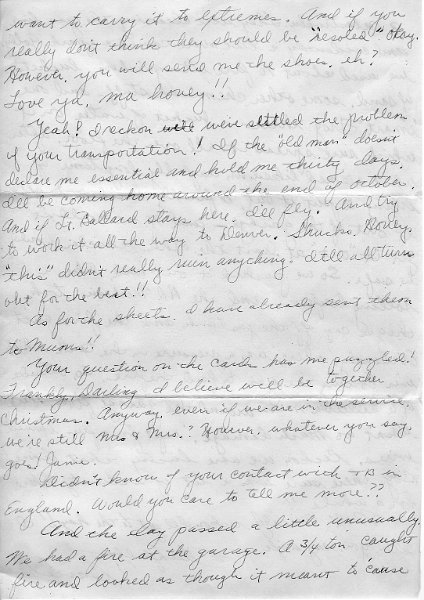 want to carry it to extremes. And if you
really don't think they should be "resoled" Okay.
However, you will send me the shoes, eh?
Love ya, ma honey!!
Yeah! I reckon we've settled the problem
of your transportation! If the "old man" doesn't
declare me essential and hold me thirty days.
I'll be coming home around the end of October.
And if Lt. Ballard stays here, I'll fly. And try
to work it all the way to Denver. Shucks, Honey,
"this" didn't really ruin anything. It'll all turn
out for the best!!
As for the sheets. I have already sent them
to Mums!!
Your question on the cards has me puzzled!
Frankly, Darling I believe we'll be together
Christmas. Anyway, even if we are in the service,
we're still Mr & Mrs.? However, whatever you say,
goes! Jamie.
Didn't know of your contact with TB in
England. Would you care to tell me more??
And the day passed a little unusually.
We had a fire at the garage. A 3/4 ton caught
fire and looked as though it meant to 'cause